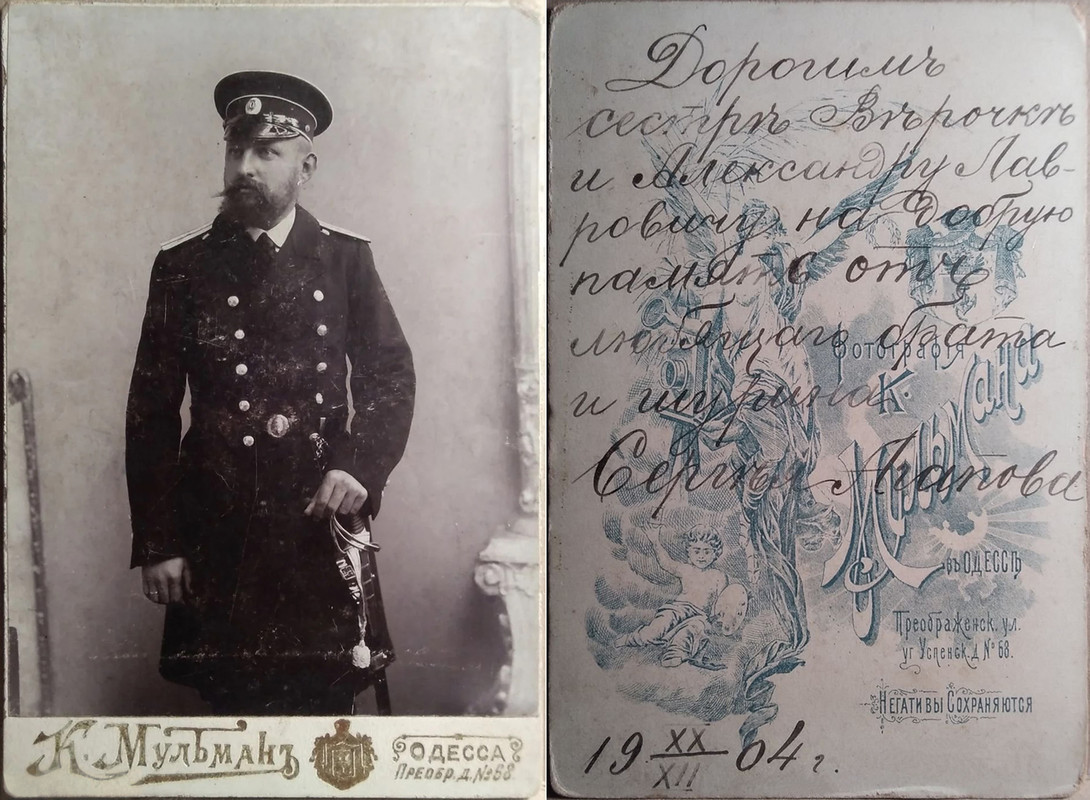 К. Мульманъ
ОДЕССА
ПРЕОБР. Д. № 68.
Дорогимъ
сестрѣ Вѣрочкѣ
и Александру Лав-
ровичу на добрую
память отъ
любящаго брата
и шурина
Сергѣя Агапова
Фотографія
К.
Мульмана
въ ОДЕССѢ
Преображенск. ул.
уг Успенск. д № 68.
НЕГАТИВЫ СОХРАНЯЮТСЯ
19 XX/XII 04 г.